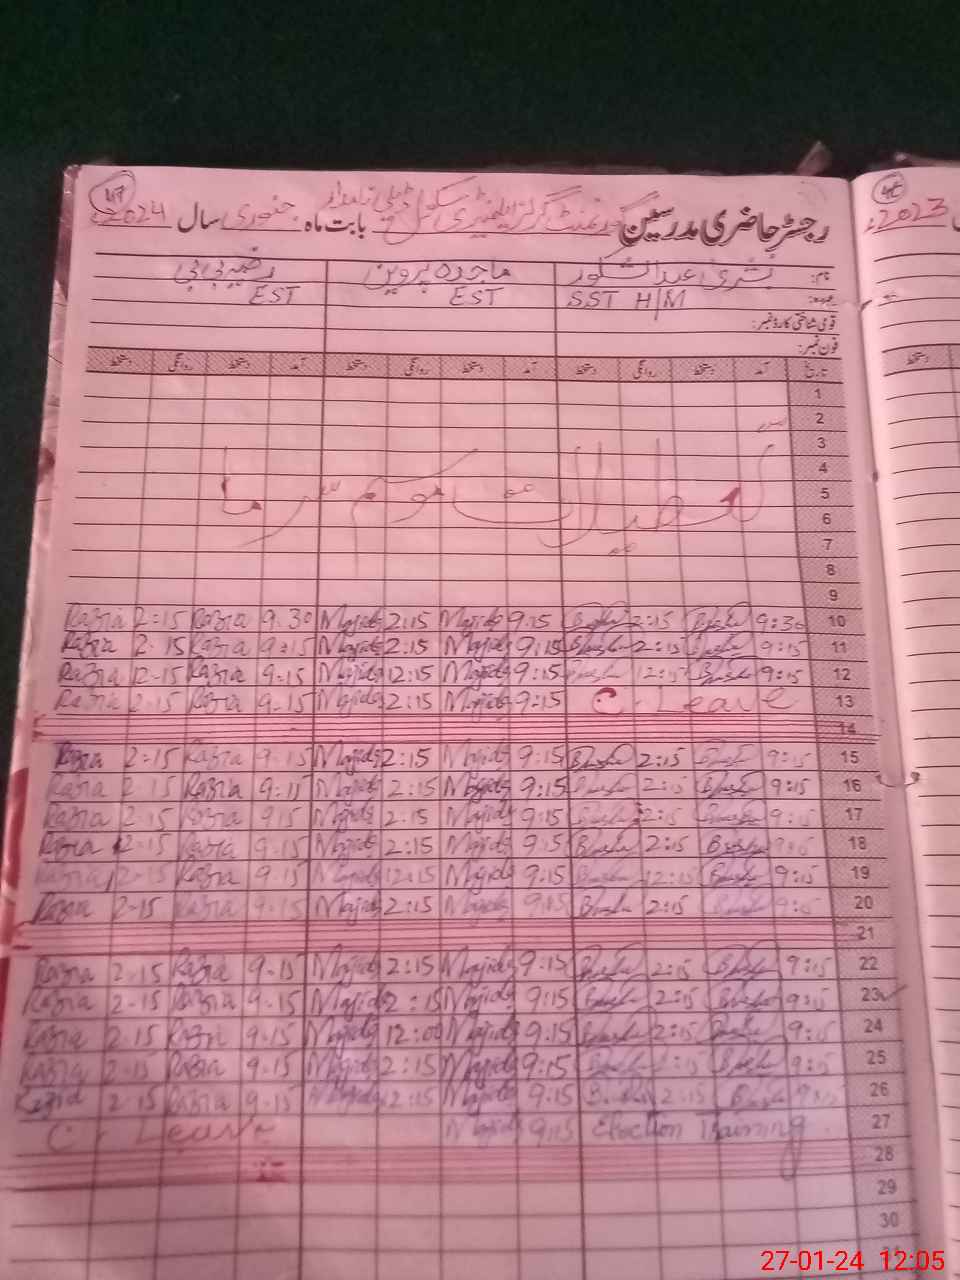 47
رجسٹر حاضری مدرسین گورنمنٹ گرلز ایلیمنٹری سکول بابت ماہ جنوری سال 2024ء
نام: بشریٰ عبدالشکور ماجدہ پروین رضیہ بی بی
عہدہ: SST H/M EST EST
قومی شناختی کارڈ نمبر:
فون نمبر:
تاریخ آمد دستخط روانگی دستخط آمد دستخط روانگی دستخط آمد دستخط روانگی دستخط
1
2
3
4
تعطیلات موسم سرما
5
6
7
8
9
Razia 2:15 Razia 9.30 Majida 2:15 Majida 9:15 Bushra 2:15 Bushra 9:30 10
Razia 2-15 Razia 9:15 Majida 2:15 Majida 9:15 Bushra 2:15 Bushra 9:15 11
Razia 12-15 Razia 9-15 Majida 12:15 Majida 9:15 Bushra 12:15 Bushra 9:15 12
Razia 2-15 Razia 9-15 Majida 2:15 Majida 9:15 C. Leave 13
14
Razia 2-15 Razia 9-15 Majida 2:15 Majida 9:15 Bushra 2:15 Bushra 9:15 15
Razia 2-15 Razia 9:15 Majida 2:15 Majida 9:15 Bushra 2:15 Bushra 9:15 16
Razia 2-15 Razia 9.15 Majida 2.15 Majida 9:15 Bushra 2:15 Bushra 9:15 17
Razia 2-15 Razia 9-15 Majida 2:15 Majida 9:15 Bushra 2:15 Bushra 18
Razia 12-15 Razia 9.15 Majida 12:15 Majida 9:15 Bushra 12:15 Bushra 9:15 19
Razia 2-15 Razia 9-15 Majida 2:15 Majida 9:15 Bushra 2:15 Bushra 20
21
Razia 2-15 Razia 9-15 Majida 2:15 Majida 9:15 Bushra 2:15 Bushra 9:15 22
Razia 2-15 Razia 9-15 Majida 2:15 Majida 9:15 Bushra 2:15 Bushra 9:15 23
Razia 2.15 Razia 9-15 Majida 12:00 Majida 9:15 Bushra 2:15 Bushra 9:15 24
Razia 2-15 Razia 9-15 Majida 2:15 Majida 9:15 Bushra 2:15 Bushra 9:15 25
Razia 2-15 Razia 9-15 Majida 2:15 Majida 9:15 Bushra 2:15 Bushra 9:15 26
C. Leave Majida 9:15 Election Training. 27
28
29
30
2023ء
27-01-24 12:05